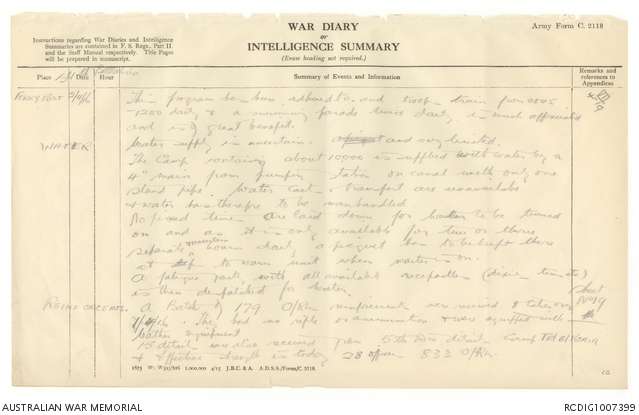 Army Form C. 2118
WAR DIARY
or
INTELLIGENCE SUMMARY
(Erase heading not required.)
Instructions regarding War Diaries and Intelligence
Summaries are contained in F. S. Regs., Part II
and the Staff Manual respectively. Title Pages
will be prepared in manuscript.
Place Date Hour
Summary of Events and Information
Remarks and
references to
Appendices
This program has been adhered to and troops train from 0005
1200 daily & a swimming parade twice daily, is much appreciated
and is of great benefit.
WATER
Water supply is uncertain and very limited.
The Camp containing about 10000 is supplied with water by a
4" main from pumping station on canal with only one
stand pipe. Water Cart & transport are unavailable
& water has therefore to be manhandled
No fixed times are laid down for water to be turned
on and as it is only available for two or three
separate hours daily, a picquet has to be kept there
at to warn unit when water is on.
A fatigue party with all available receptacles (dixies tins etc)
is then despatched for water
REINFORCEMENTS
A Batch of 179 O/Rks reinforcements were received & taken over
. They had no rifles or ammunition & were equipped with
leather equipment
15 details were also received from 5th Divn details Camp Tel el Kebir
& effective strength is today 28 officers 833 O/Rks
1875 Wt. W593/826 1,000,000 4/15 J.B.C. & A. A.D.S.S./Forms/C. 2118.
AUSTRALIAN WAR MEMORIAL
RCDIG1007399